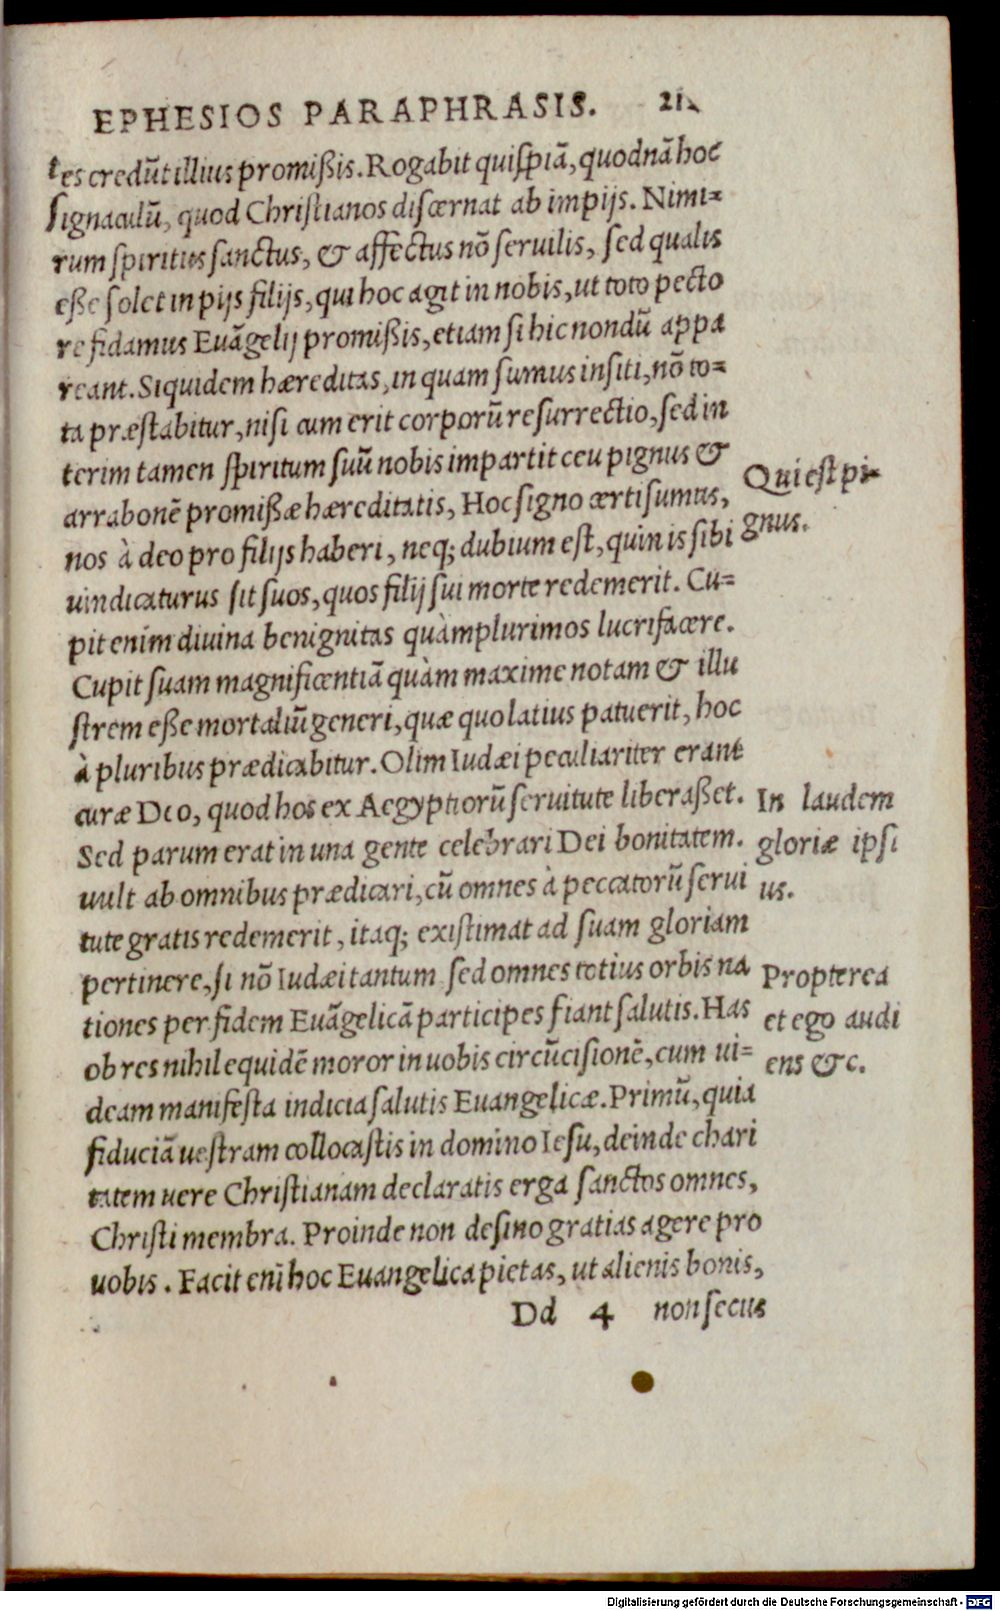 EPHESIOS PARAPHRASIS.
tes credũt illius promißis. Rogabit quiſpiã, quodnã hoc
ſignaculũ, quod Chriſtianos diſcernat ab impijs. Nimi⸗
rum ſpiritus ſanctus, & affectus nõ ſeruilis, ſed qualis
eße ſolet in pijs filijs, qui hoc agit in nobis, ut toto pecto
re fidamus Euãgelij promißis, etiam ſi hic nondũ appa
reant. Siquidem hæreditas, in quam ſumus inſiti, nõ to⸗
ta præſtabitur, niſi cum erit corporũ reſurrectio, ſed in
terim tamen ſpiritum ſuũ nobis impartit ceu pignus &
arrabonẽ promißæ hæreditatis, Hoc ſigno certi ſumus,
Qui eſt pi⸗
gnus.
nos à deo pro filijs haberi, neq; dubium eſt, quin is ſibi
uindicaturus ſit ſuos, quos filij ſui morte redemerit. Cu⸗
pit enim diuina benignitas quàmplurimos lucrifacere.
Cupit ſuam magnificentiã quàm maxime notam & illu
ſtrem eße mortaliũ generi, quæ quo latius patuerit, hoc
à pluribus prædicabitur. Olim Iudæi peculiariter erant
curæ Deo, quod hos ex Aegyptiorũ ſeruitute liberaßet.
In laudem
gloriæ ipſi
us.
Sed parum erat in una gente celebrari Dei bonitatem.
uult ab omnibus prædicari, cũ omnes à peccatorũ ſerui
tute gratis redemerit, itaq; exiſtimat ad ſuam gloriam
pertinere, ſi nõ Iudæi tantum ſed omnes totius orbis na
Propterea
et ego audi
ens &c.
tiones per fidem Euãgelicã participes fiant ſalutis. Has
ob res nihil equidẽ moror in uobis circũciſionẽ, cum ui⸗
deam manifeſta indicia ſalutis Euangelicæ. Primũ, quia
fiduciã ueſtram collocaſtis in domino Ieſu, deinde chari
tatem uere Chriſtianam declaratis erga ſanctos omnes,
Chriſti membra. Proinde non deſino gratias agere pro
uobis. Facit enĩ hoc Euangelica pietas, ut alienis bonis,
Dd 4 non ſecus
Digitalisierung gefördert durch die Deutsche Forschungsgemeinschaft - DFG